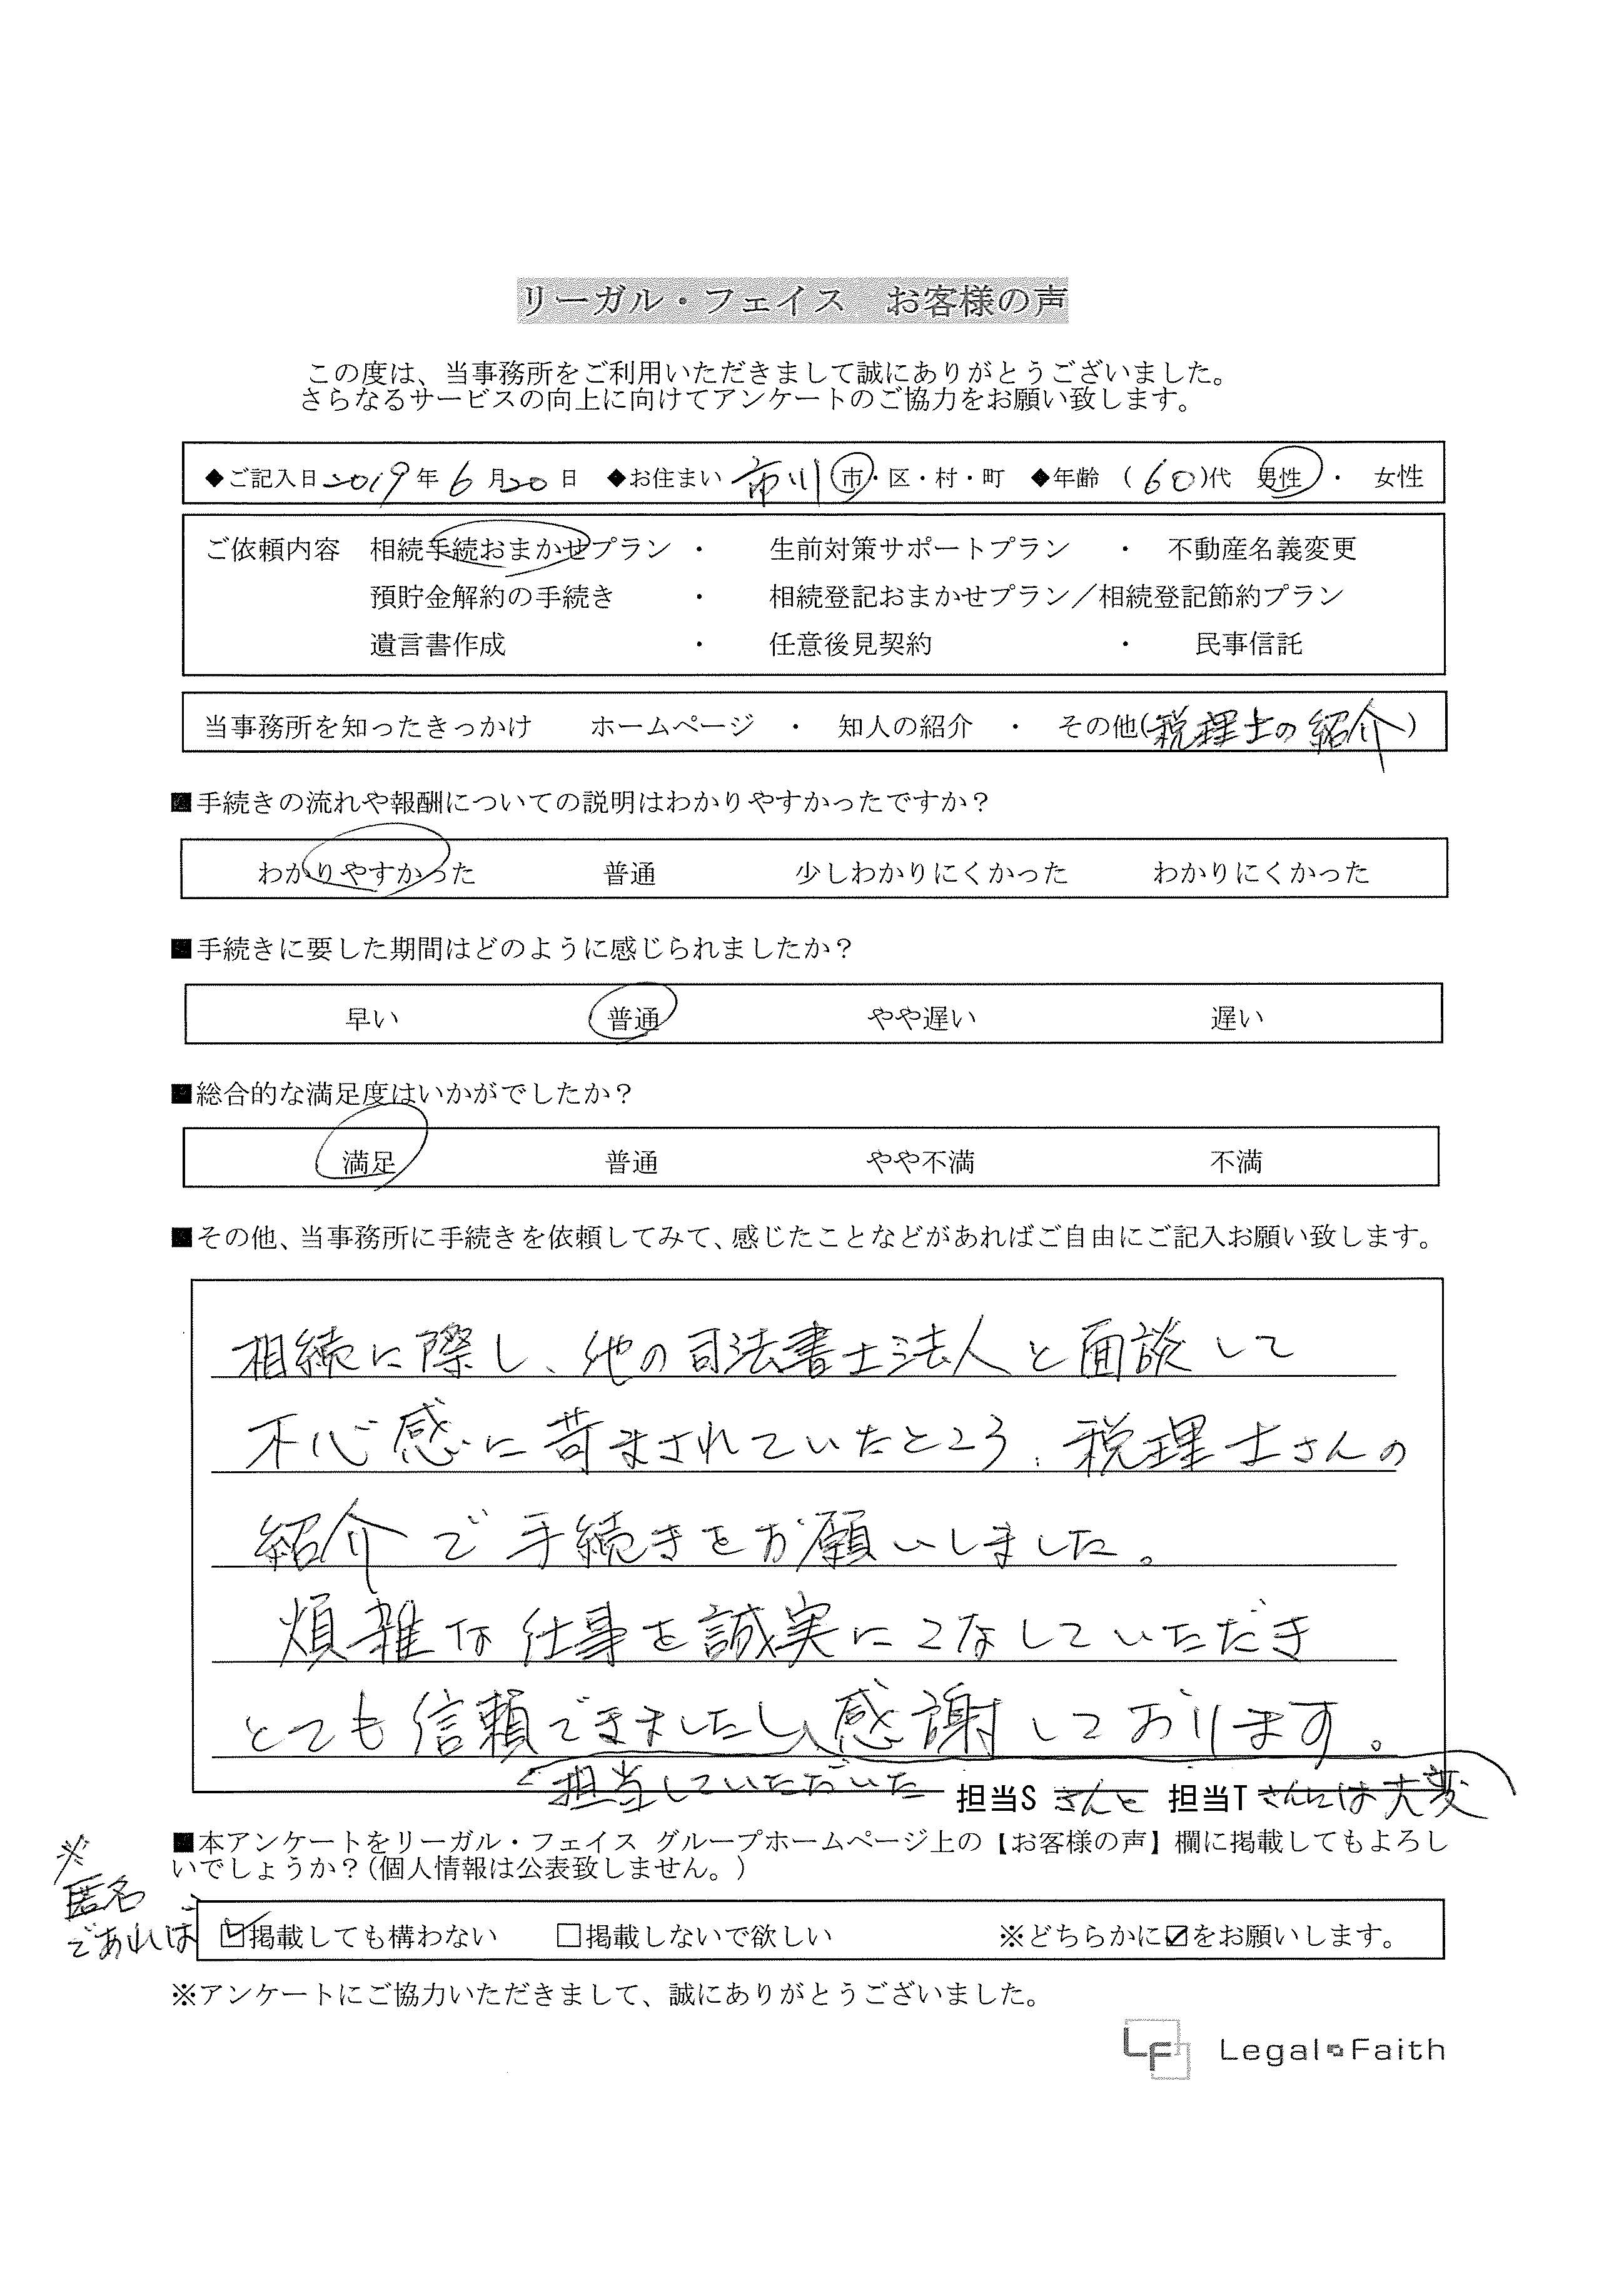 リーガル・フェイス　お客様の声
この度は、当事務所をご利用いただきまして誠にありがとうございました。
さらなるサービスの向上に向けてアンケートのご協力をお願い致します。
◆ご記入日2019年6月20日　◆お住まい 市川 市・区・村・町　◆年齢（60）代　男性・女性
ご依頼内容　相続手続おまかせプラン・生前対策サポートプラン・不動産名義変更
預貯金解約の手続き・相続登記おまかせプラン／相続登記節約プラン
遺言書作成・任意後見契約・民事信託
当事務所を知ったきっかけ　ホームページ・知人の紹介・その他(税理士の紹介)
■手続きの流れや報酬についての説明はわかりやすかったですか？
わかりやすかった　普通　少しわかりにくかった　わかりにくかった
■手続きに要した期間はどのように感じられましたか？
早い　普通　やや遅い　遅い
■総合的な満足度はいかがでしたか？
満足　普通　やや不満　不満
■その他、当事務所に手続きを依頼してみて、感じたことなどがあればご自由にご記入お願い致します。
相続に際し、他の司法書士法人と面談して
不心感に苛まされていたところ、税理士さんの
紹介で手続きをお願いしました。
煩雑な仕事を誠実にこなしていただき
とても信頼できましたし、感謝しております。
担当していただいた 担当S さんと 担当T さんには大変
■本アンケートをリーガル・フェイス グループホームページ上の【お客様の声】欄に掲載してもよろし
いでしょうか？(個人情報は公表致しません。)
※
匿名
であれば
☑掲載しても構わない　□掲載しないで欲しい　※どちらかに☑をお願いします。
※アンケートにご協力いただきまして、誠にありがとうございました。
LF Legal Faith